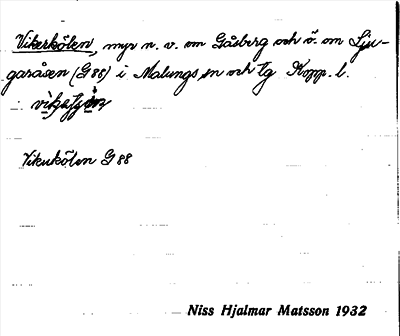 Vikerkölen, myr n. v. om Gåsberg och ö. om Lju-
garåsen (G 88) i Malungs sn och tg Kopp. l.
Vikukölen G 88
Niss Hjalmar Matsson 1932